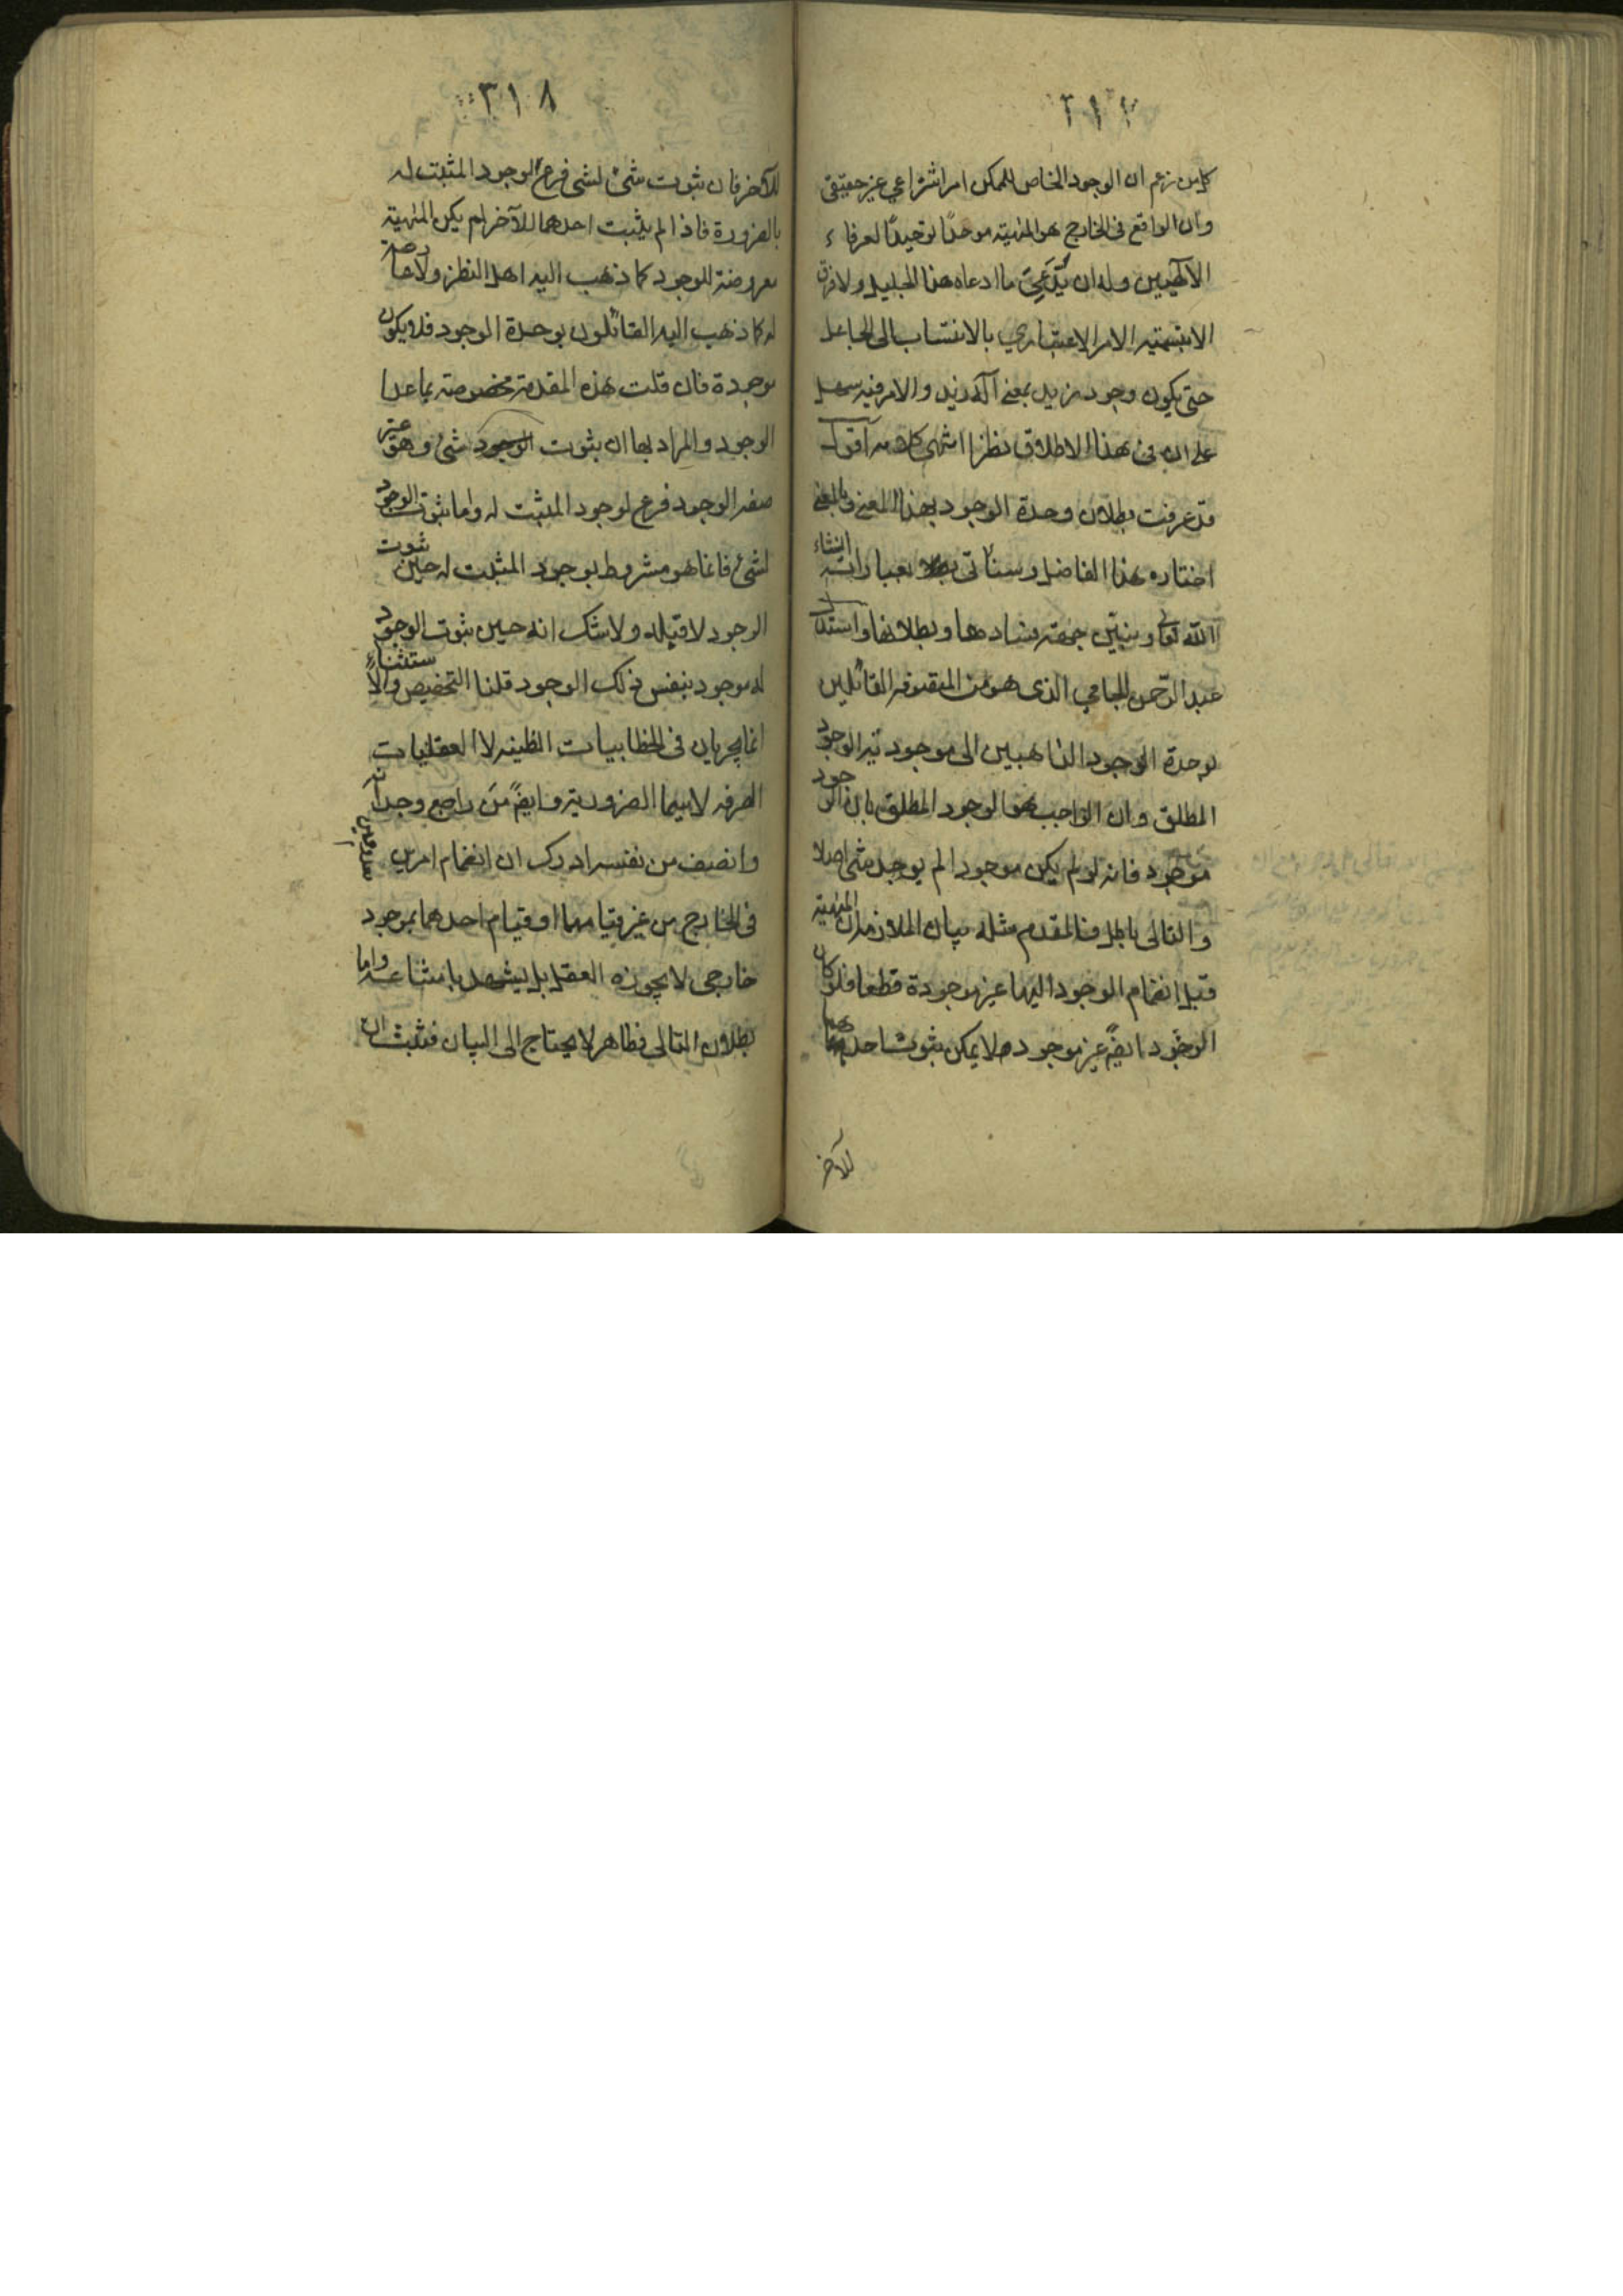 ٣١٧
كل من زعم ان الوجود الخاص للممكن امر انتزاعي غير حقيقى
وان الواقع فى الخارج هو المهية موحدًا توحيدًا لعرفاء
الآلهيين وله ان يَدَّعِىَ ما ادعاه هذا الجليل ولا فرق
الا بتسمية الامر الاعتباري بالانتساب الى الجاعل
حتى يكون وجود زيد بمعنى آله زيد والامر فيه سهل
على ان فى هذا الاطلاق نظرا انتهى كلامه اقول
قد عرفت بطلان وحدة الوجود بهذا المعنى بالمعنى
اختاره هذا الفاضل وسنأتى بعباراته انشاء
الله تعالى ونبيّن جهة فسادها وبطلانها واستدل
عبد الرّحمن الجامي الذى هو من المتصوفه القائلين
بوحدة الوجود الذاهبين الى موجودية الوجود
المطلق وان الواجب هو الوجود المطلق بان الوجود
موجود فانه لو لم يكن موجودا لم يوجد شئ اصلا
والتالى باطل فالمقدم مثله بيان الملازمة ان المهية
قبل انضمام الوجود اليها غير موجودة قطعا فلو كان
الوجود ايضً غير موجود لا يمكن ثبوت احدهما
للآخر
٣١٨
للآخر فان ثبوت شئ لشئ فرع لوجود المثبت له
بالضرورة فاذا لم يثبت احدهما للآخر لم يكن المهية
معروضة للوجود كما ذهب اليه اهل النظر ولا عارضة
له كما ذهب اليه القائلون بوحدة الوجود فلا يكون
موجودة فان قلت هذه المقدمة مخصوصة بما عدا
الوجود والمراد بها ان ثبوت شئ وهو غير
صفه الوجود فرع لوجود المثبت له واما ثبوت الوجود
لشئ فانما هو مشروط بوجود المثبت له حين ثبوت
الوجود لا قبله ولا شك انه حين ثبوت الوجود
له موجود بنفس ذلك الوجود قلنا التخصيص والاستثناء
انما يجريان فى الخطابيات الظنيه لا العقليات
الصرفه لاسيما الضرورية وايضً من راجع وجدانه
وانصف من نفسه ادرك ان انضمام امرين معدومين
فى الخارج من غير قيامهما او قيام احدهما بموجود
خارجى لا يجوزه العقل بل يشهد بامتناعه واما
بطلان التالي فظاهر لا يحتاج الى البيان فثبت ان